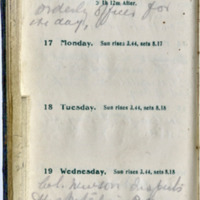 > 1h 12m After.
orderly officer for
the day,
17 Monday. Sun rises 3.44, sets 8.17
18 Tuesday. Sun rises 3.44, sets 8.18
19 Wednesday. Sun rises 3.44, sets 8.18
Col. inspects